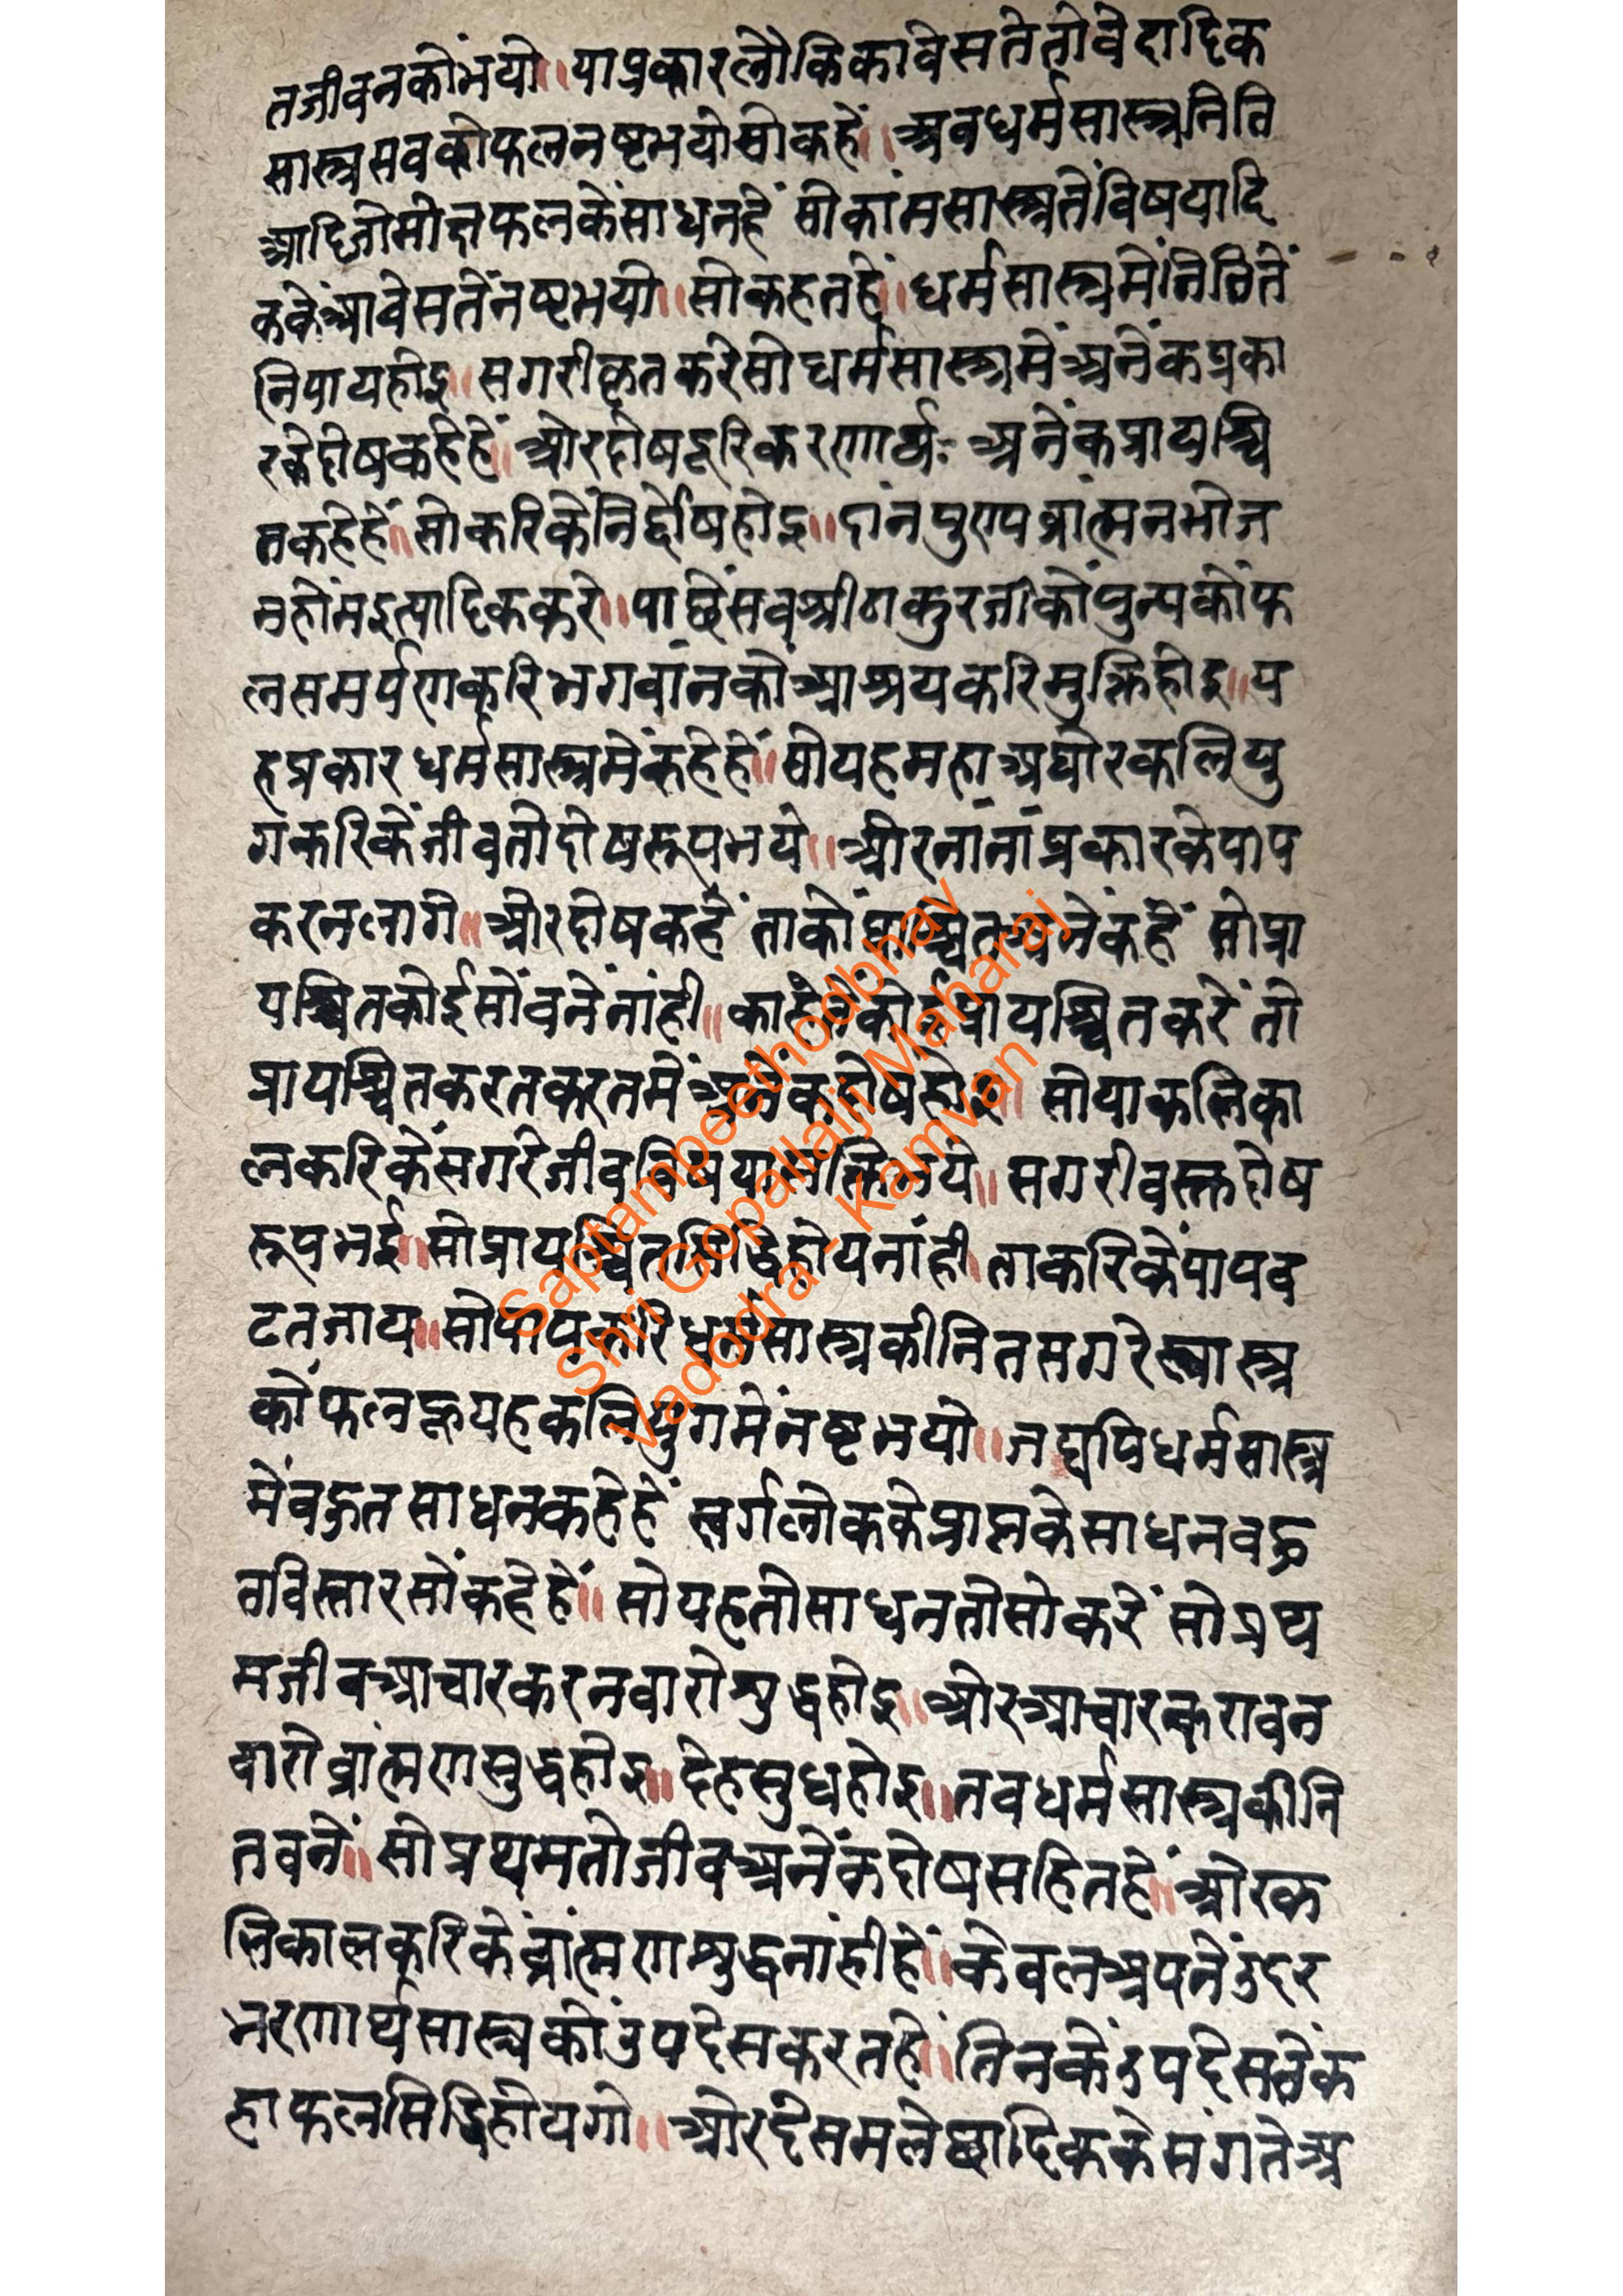 तजीवनकोंभयो॥याप्रकारलौकिकावेसतेतोवेदादिक
सास्त्रसबकोफलनष्टभयोसोकहें॥अबधर्मसास्त्रनिति
आदिजोमोक्षफलकेंसाधनहें सोकांमसास्त्रतेंविषयादि
ककेंआवेसतेंनष्टभयो॥सोकहतहें॥धर्मसास्त्रमेंनितितें
निपायहोइ॥सगरीकृतकरेसोधर्मसास्त्रमेंअनेंकप्रका
रकेदोषकहेहें॥ओरदोषदूरिकरणार्थ अनेंकप्रायश्चि
तकहेहें॥सोकरिकेंनिर्दोषहोइ॥दांनपुण्यब्रांत्मनभोज
नहोंमइत्यादिककरे॥पाछेंसबश्रीठाकुरजीकोंपुन्यकोंफ
लसमर्पणकरिभगवांनकोंआश्रयकरिमुक्तिहोइ॥य
हप्रकारधर्मसास्त्रमेंकहेहें॥सोयहमहाअघोरकलियु
गकरिकेंजीवतोदोषरूपभये॥ओरनांनांप्रकारकेपाप
करनलागे॥ओरदोषकहें ताकोंप्राश्चितअनेंकहें सोप्रा
यश्चितकोईसोंबनेंनांही॥काहेतेंकोईप्रायश्चितकरें तो
प्रायश्चितकरतकरतमेंअनेंकदोषहोइ॥सोयाकलिका
लकरिकेंसगरेजीवविषयासक्तिभये॥सगरीवस्तदोष
रूपभई॥सोप्रायश्चितसिद्धिहोयनांही॥ताकरिकेंपापब
ढतजाय॥सोपापकरिधर्मसास्त्रकीनितसगरेस्वास्त्र
कोंफलहूयहकलियुगमेंनष्टभयो॥जद्यपिधर्मसास्त्र
मेंबहुतसाधनकहेहें स्वर्गलोककेप्राप्तकेसाधनबहु
तविस्तारसोंकहेहें॥सोयहतोसाधनतोसोकरें सोप्रथ
मजीवआचारकरनवारोशुद्धहोइ॥ओरआचारकरावन
वारोब्रांत्मणसुद्धहोइ॥देहसुधहोइ॥तबधर्मसास्त्रकीनि
तबनें॥सोप्रथमतोजीवअनेंकदोषसहितहें॥ओरक
लिकालकरिकेंब्रांत्मणशुद्धनांहीहें॥केवलअपनेंउदर
भरणार्थसास्त्रकोंउपदेसकरतहें॥तिनकेंउपदेसतेंक
हाफलसिद्धिहोयगो॥ओरदेसमलेछादिककेसंगतेअ
Saptampeethodbhav
Shri Gopallalji Maharaj
Vadodra - Kamvan